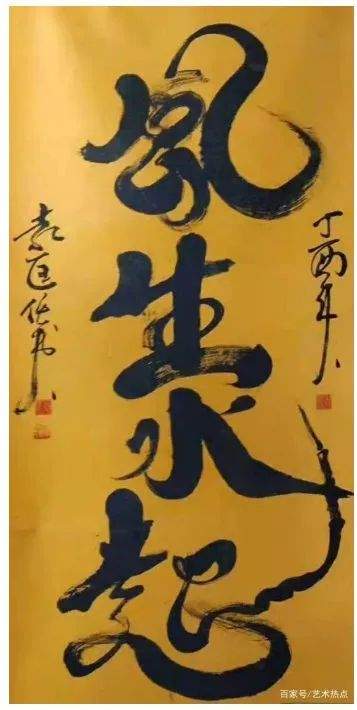 丁酉年
風生水起
袁书
百家号/艺术热点